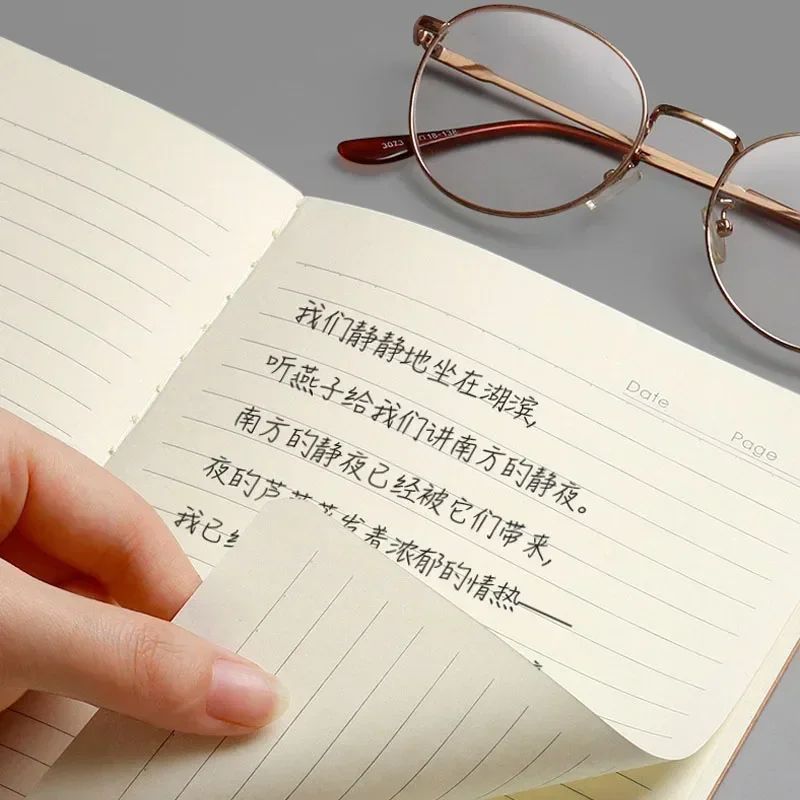 Date
Page
我们静静地坐在湖滨,
听燕子给我们讲南方的静夜。
南方的静夜已经被它们带来,
夜的芦 发着浓郁的情热——
我已